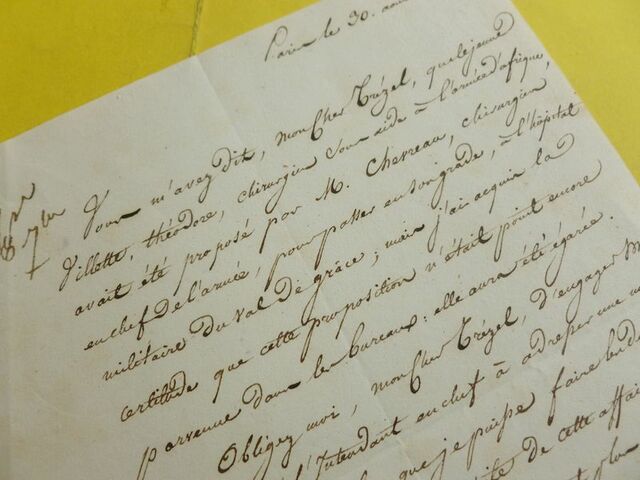 Paris le 30. aou
Vous m'avez dit, mon Cher Trézel, que le jeune
Villette, théodore, chirurgien sous aide à l'armée d'afrique,
avait été proposé par M. Chevreau, chirurgien
en chef de l'armée, pour passer en son grade, à l'hôpital
militaire du Val de grâce; mais j'ai acquis la
certitude que cette proposition n'était point encore
parvenue dans les bureaux: elle aura été égarée.
Obligez moi, mon Cher Trézel, d'engager M
l'Intendant en chef à adresser une
que je puisse faire
de cette affai